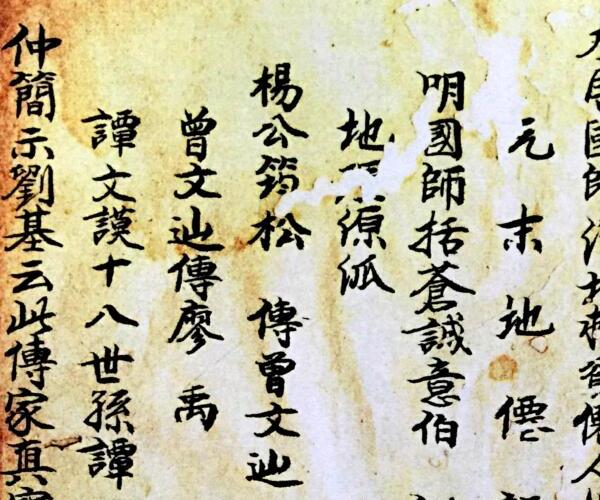 國師
元末地僊
明國師括蒼誠意伯
地源泒
楊公筠松 傳曾文辿
曾文辿傳廖 禹
譚文謨十八世孫譚
仲簡示劉基云此傳家真